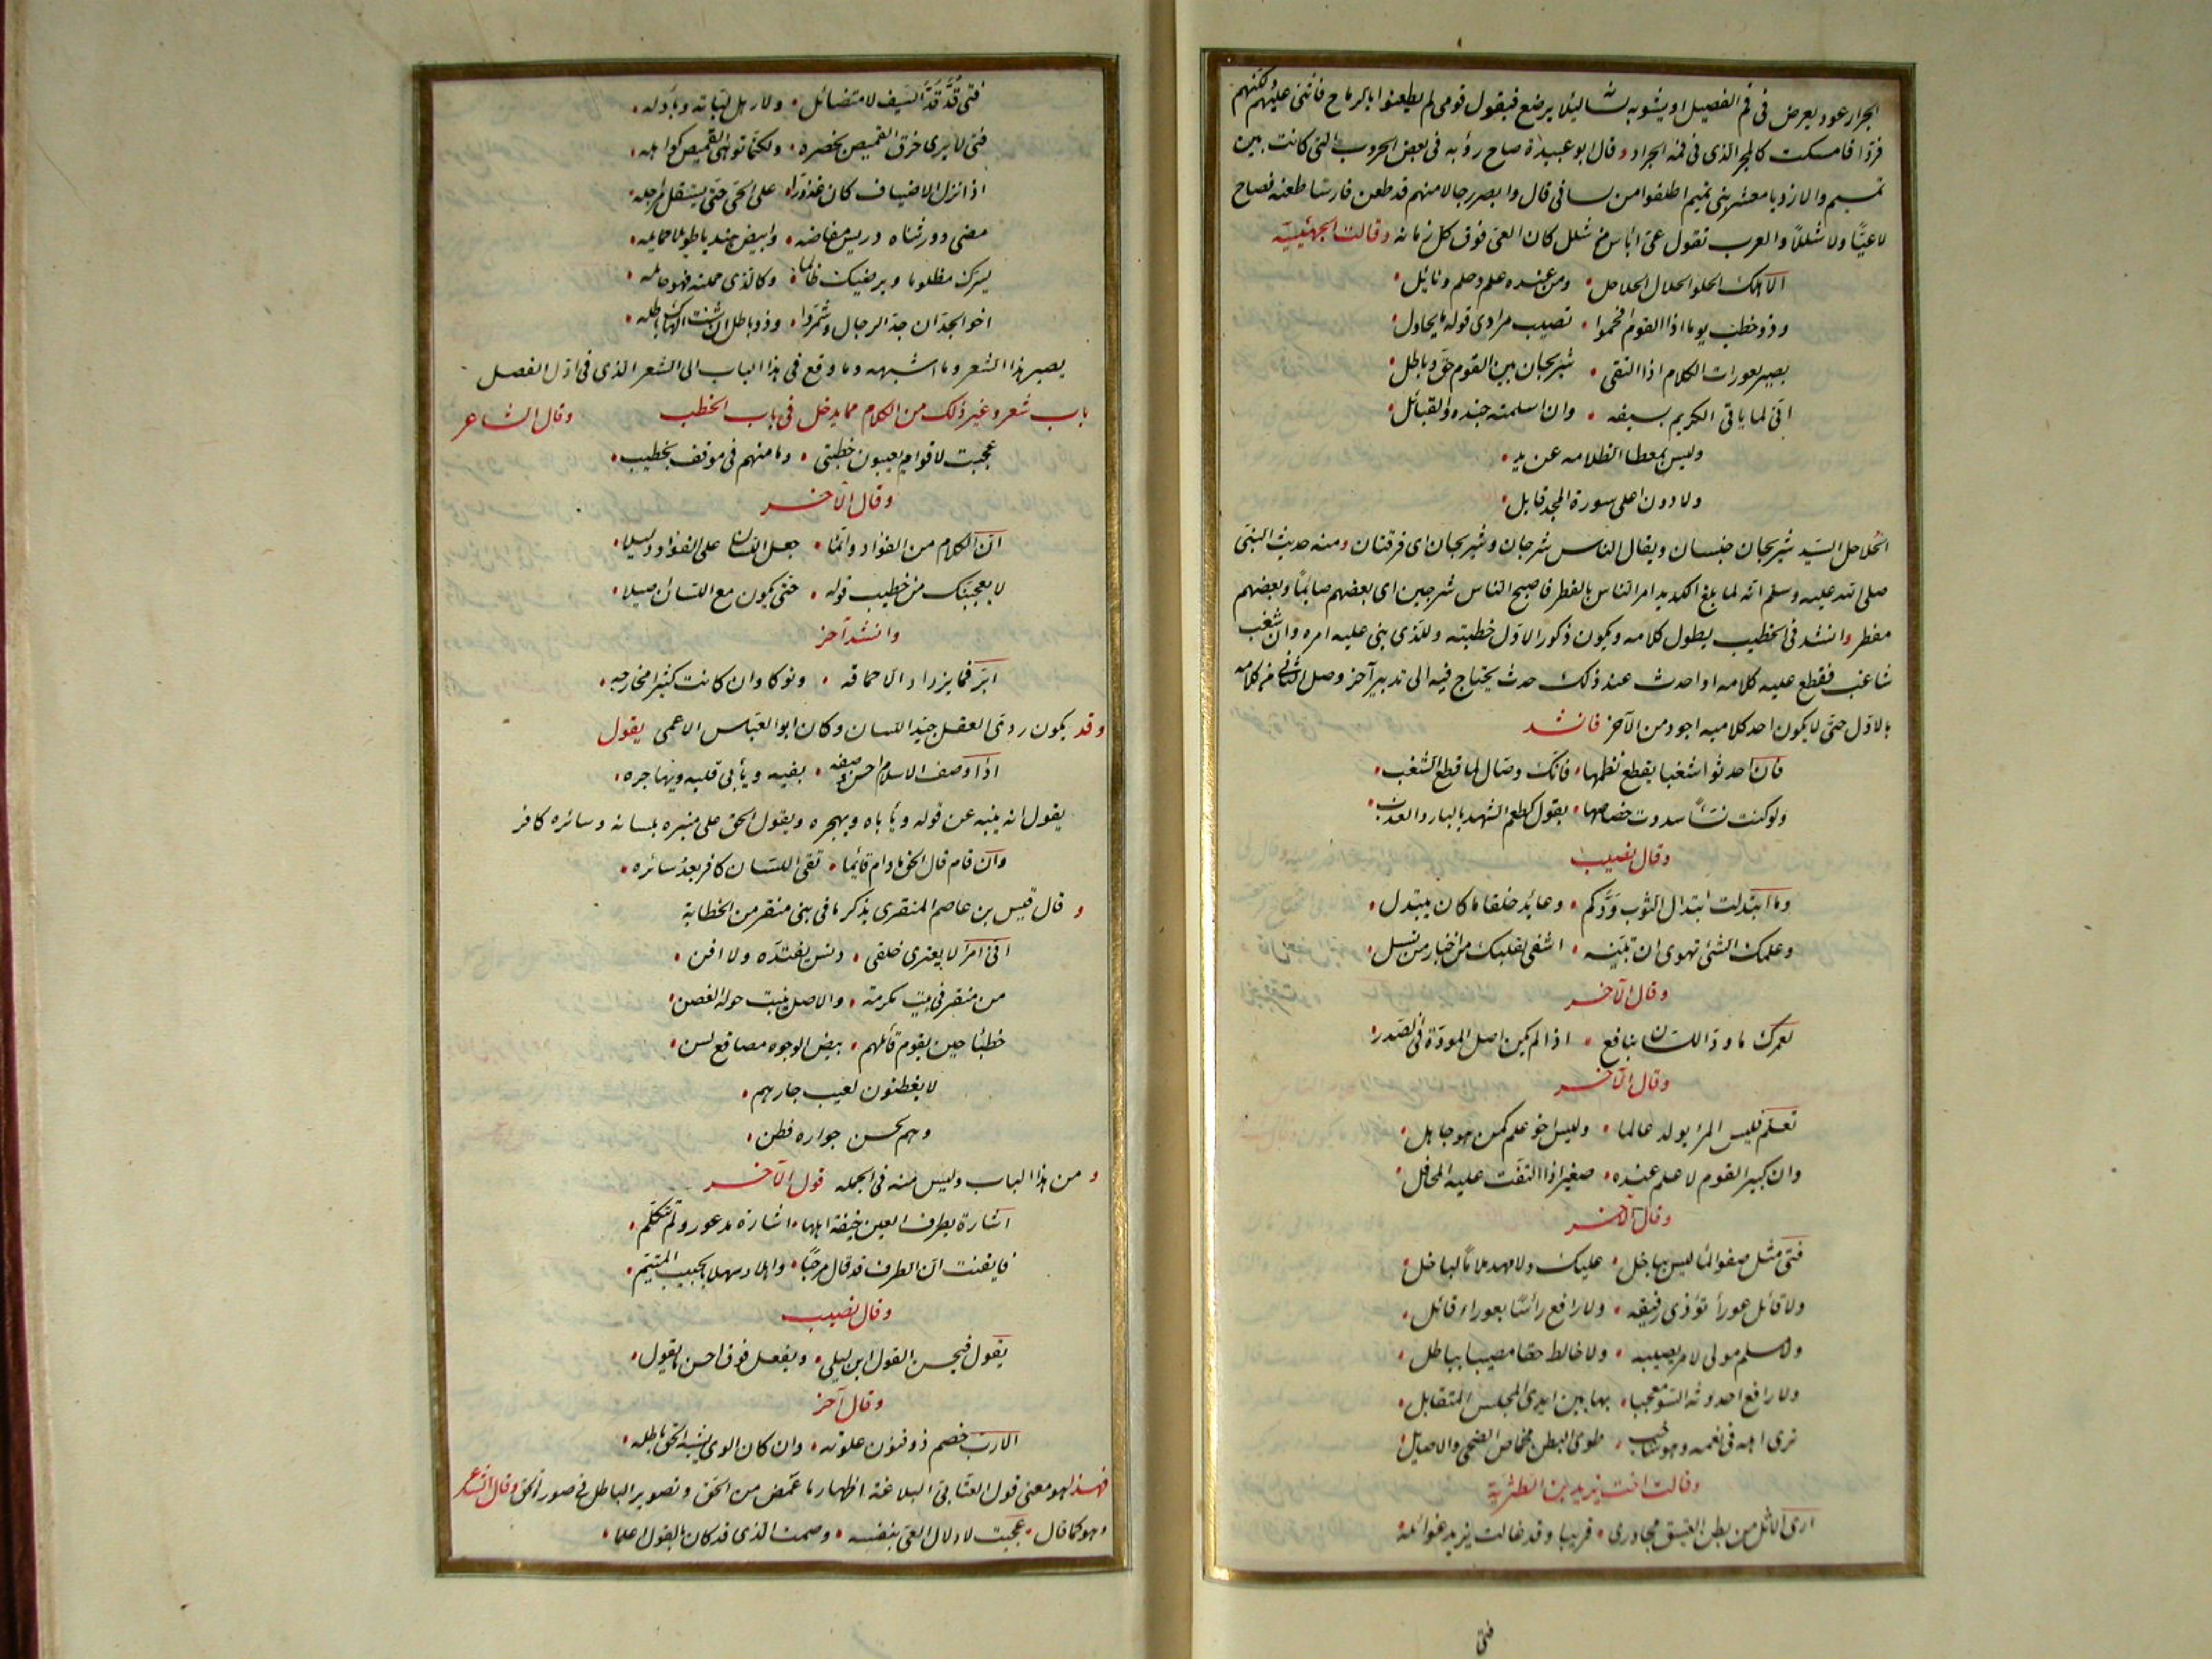 الجرار عود يعرض فى فم الفصيل او يشق به لسانه لئلا يرضع فيقول قومى لم يطعنوا بالرماح فأثنى عليهم ولكنهم
فروا فامسكت كالمجر الذى فى فمه الجرار وقال ابو عبيدة صاح رؤبه فى بعض الحروب التى كانت بين
تميم والازد يا معشر بنى تميم اطلقوا من لسانى قال وابصر رجالا منهم قد طعن فارسا طعنه فصاح
لاعيًّا ولا شللاً والعرب تقول عىّ ابأس من شلل كان العىّ فوق كل زمانه وقالت الجهنيّة
الا هلك الحلو الحلال الحلاحل • ومن عنده علم وحلم ونائل •
وذو خطب يوما اذا القوم افحموا • تصيب مرادى قوله ما يحاول •
بصير بعورات الكلام اذا التقى • شريجان بين القوم حق وباطل •
اتى لما ياتى الكريم بسيفه • وان اسلمته جنده والقبائل •
وليس بمعطاء الظلامه عن يد •
ولا دون اعلى سورة المجد قابل •
الحلاحل السيّد شريجان جنسان ويقال الناس شرجان وشريجان اى فرقتان ومنه حديث النبىّ
صلى الله عليه وسلم انه لما بلغ الكديد امر الناس بالفطر فاصبح الناس شرجين اى بعضهم صائمًا وبعضهم
مفطر وانشد فى الخطيب يطول كلامه ويكون ذكور الاول خطبته وللذى بنى عليه امره وان شغب
شاغب فقطع عليه كلامه او احدث عند ذلك حدث يحتاج فيه الى تدبير آخر وصل الثانى من كلامه
بالاول حتى لا يكون احد كلاميه اجود من الآخر فانشد
فان احدثوا شغبا يقطع نظمها • فانك وصال لما قطع الشغب •
ولو كنت نسّاجًا سددت خصاصها • بقول كطعم الشهد بالبارد العذب •
وقال نصيب
وما ابتذلت ابتذال الثوب ودّكم • وعائد خلقا ما كان يبتذل •
وعلمك الشئ تهوى ان تبيّنه • اشفى لقلبك من اخبار من تسل •
وقال الآخر
لعمرك ما ودّ اللسان بنافع • اذا لم يكن اصل المودّة فى الصدر •
وقال الآخر
تعلّم فليس المرء يولد عالما • وليس اخو علم كمن هو جاهل •
وان كبير القوم لا علم عنده • صغير اذا التفّت عليه المحافل •
وقال الآخر
فتى مثل صفو الماء ليس بباخل • عليك ولا مهد ملامًا لباخل •
ولا قائل عوراء تؤذى رفيقه • ولا رافع رأسًا بعوراء قائل •
ولا مسلم مولى لامر يصيبه • ولا خالط حقا مصيبا بباطل •
ولا رافع احدوثه السوء معجبا • بها بين ايدى المجلس المتقابل •
ترى اهله فى نعمه وهو شاحب • طوى البطن مخماص الضحى والاصيل •
وقالت اخت يزيد بن الطثريّة
ارى الاثل من بطن العقيق مجاورى • قريبا وقد غالت يزيد غوائله
فتى
فتى قُدّ قَدّ السيف لا متضائل • ولا رهل لبّاته وبآدله •
فتى لا يرى خرق القميص بخصره • ولكنما توهى القميص كواهله •
اذا نزل الاضياف كان عذوّرا • على الحىّ حتى تستقل مراجله •
مضى وورثناه دريس مفاضه • وابيض هنديا طويلا حمائله •
يسرّك مظلوما ويرضيك ظالما • وكل الذى حملته فهو حامله •
اخو الجدّ ان جدّ الرجال وشمّروا • وذو باطل ان شئت الهاك باطله •
يصير هذا الشعر وما اشبهه وما وقع فى هذا الباب الى الشعر الذى فى اوّل الفصل •
باب شعر وغير ذلك من الكلام مما يدخل فى باب الخطب وقال الشاعر
عجبت لاقوام يعيبون خطبتى • وما منهم فى موقف بخطيب •
وقال الآخر
ان الكلام من الفؤاد وانما • جعل اللسان على الفؤاد دليلا •
لا يعجبنّك من خطيب قوله • حتى يكون مع اللسان اصيلا •
وانشد آخر
ابرّ فما يزداد الا حماقه • ونوكا وان كانت كثيرا مخارجه •
وقد يكون ردى العقل جيّد اللسان وكان ابو العبّاس الاعمى يقول
اذا وصف الاسلام احسن وصفه • بفيه ويأبى قلبه ويهاجره •
يقول انه ينبه عن قوله ويأباه ويهجره ويقول الحق على منبره بلسانه وسائره كافر
وان قام قال الحق ما دام قائما • تقى اللسان كافر بعد سائره •
وقال قيس بن عاصم المنقرى يذكر ما فى بنى منقر من الخطابة
انى امرؤ لا يعترى خلقى • دنس يفنّده ولا افن •
من منقر فى بيت مكرمة • والاصل ينبت حوله الغصن •
خطباء حين يقوم قائلهم • بيض الوجوه مصاقع لسن •
لا يفطنون لعيب جارهم •
وهم لحسن جواره فطن •
ومن هذا الباب وليس منه فى الجمله قول الآخر
اشارة بطرف العين خيفة اهلها • اشارة مذعور ولم تتكلم •
فايقنت ان الطرف قد قال مرحبًا • واهلا وسهلا بالحبيب المتيّم •
وقال نصيب
يقول فيحسن القول ابن ليلى • ويفعل فوق احسن ما يقول •
وقال آخر
الا رب خصم ذو فنون علوته • وان كان الوى يشبه الحق باطله •
فهذا هو معنى قول العتابى البلاغة اظهار ما غمض من الحق وتصوير الباطل فى صورة الحق وقال الشاعر
وهو كما قال • عجبت لادلال العىّ بنفسه • وصمت الذى قد كان بالقول اعلما •